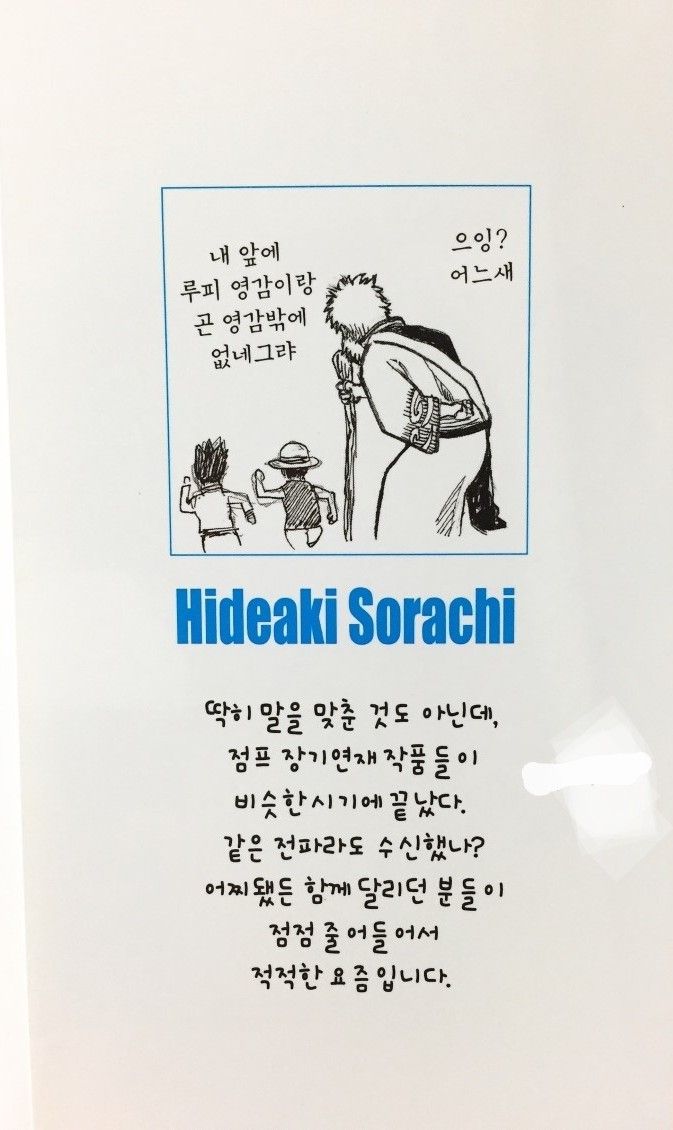 으잉?
어느새
내 앞에
루피 영감이랑
곤 영감밖에
없네그랴
Hideaki Sorachi
딱히 말을 맞춘 것도 아닌데,
점프 장기연재 작품들이
비슷한 시기에 끝났다.
같은 전파라도 수신했나?
어찌됐든 함께 달리던 분들이
점점 줄어들어서
적적한 요즘입니다.